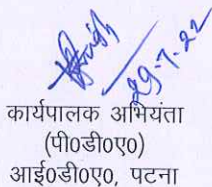 29-7-22
कार्यपालक अभियंता
(पी0डी0ए0)
आई0डी0ए0, पटना